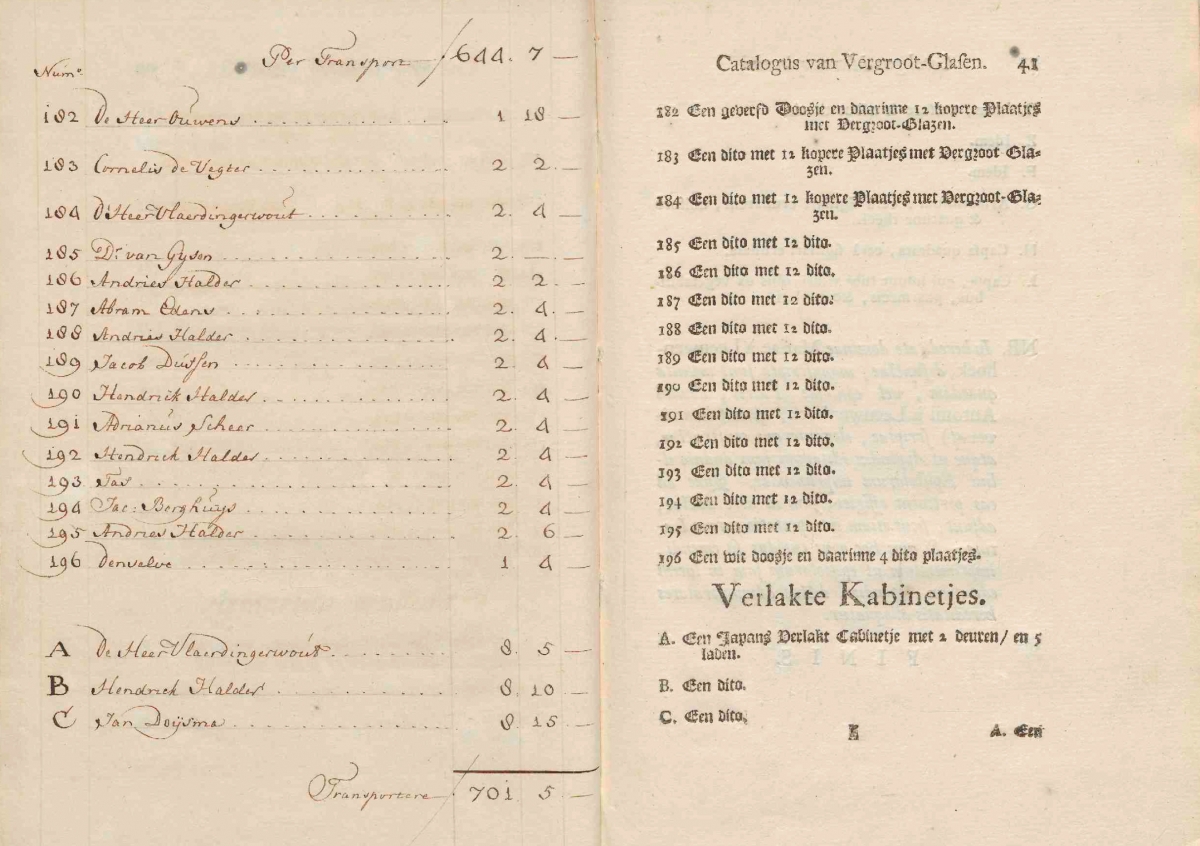 Per Transport 644. 7 —
Num.
182 De Heer Ouwens 1 18 —
183 Cornelis de Vegter 2 2. —
184 D'Heer Vlaerdingerwout 2. 4 —
185 Dr. van Gysen 2. — —
186 Andries Halder 2 2 —
187 Abram Edens 2. 4. —
188 Andries Halder 2. 4. —
189 Jacob Dutsen 2. 4 —
190 Hendrick Halder 2. 4 —
191 Adrianus Scheer 2. 4 —
192 Hendrick Halder 2. 4 —
193 Tas 2. 4 —
194 Jac: Berghuys 2 4 —
195 Andries Halder 2. 6 —
196 Denselve 1 4 —
A De Heer Vlaerdingerwout 8. 5 —
B Hendrick Halder 8. 10 —
C Jan Doijsma 8. 15 —
Transportere 701 5 —
Catalogus van Vergroot-Glasen. 41
182 Een geverfd Doosje en daarinne 12 kopere Plaatjes
met Vergroot-Glazen.
183 Een dito met 12 kopere Plaatjes met Vergroot Gla-
zen.
184 Een dito met 12 kopere Plaatjes met Vergroot-Gla-
zen.
185 Een dito met 12 dito.
186 Een dito met 12 dito.
187 Een dito met 12 dito.
188 Een dito met 12 dito.
189 Een dito met 12 dito.
190 Een dito met 12 dito.
191 Een dito met 12 dito.
192 Een dito met 12 dito.
193 Een dito met 12 dito.
194 Een dito met 12 dito.
195 Een dito met 12 dito.
196 Een wit doosje en daarinne 4 dito plaatjes.
Verlakte Kabinetjes.
A. Een Japans Verlakt Cabinetje met 2 deuren/ en 5
laden.
B. Een dito.
C. Een dito.
A. Een